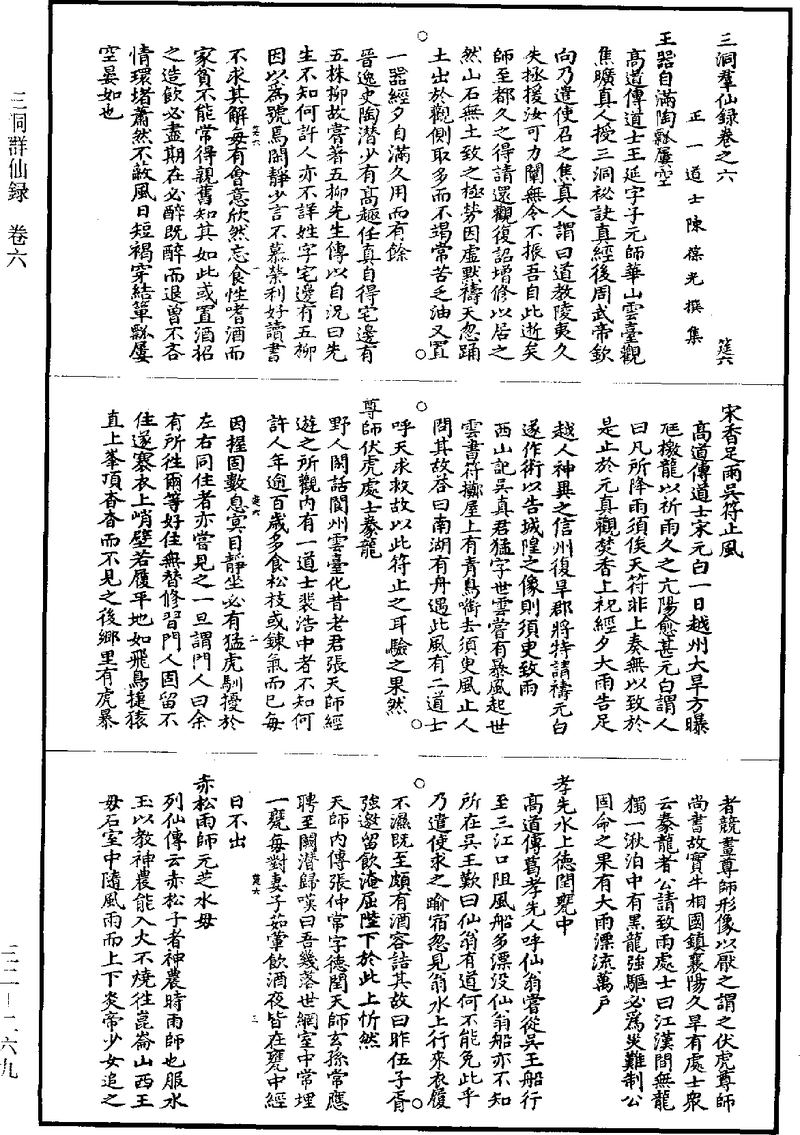 三洞群仙録　卷六
三洞羣仙録卷之六　筵六
正一道士陳葆光撰集
王器自滿陶瓢屢空
高道傳道士王延字子元師華山雲臺觀
焦曠真人授三洞祕訣真經後周武帝欽
向乃遣使召之焦真人謂曰道教陵夷久
失拯援汝可力闡無令不振吾自此逝矣
師至都久之得請還觀復詔增修以居之
然山石無土致之極勞因虛默禱天忽踊
土出於觀側取多而不竭常苦乏油又置
一器經夕自滿久用而有餘
晉逸史陶潛少有高趣任真自得宅邊有
五株柳故嘗著五柳先生傳以自況曰先
生不知何許人亦不詳姓字宅邊有五柳
因以為號焉閑靜少言不慕榮利好讀書
筵六　一
不求其解每有會意欣然忘食性嗜酒而
家貧不能常得親舊知其如此或置酒招
之造飲必盡期在必醉既醉而退曾不吝
情環堵蕭然不蔽風日短褐穿結簞瓢屢
空晏如也
宋香足雨吳符止風
高道傳道士宋元白一日越州大旱方曝
尫檄龍以祈雨久之亢陽愈甚元白謂人
曰凡所降雨須俟天符非上奏無以致於
是止於元真觀焚香上祝經夕大雨告足
越人神異之信州復旱郡將特請禱元白
遂作術以告城隍之像則須臾致雨
西山記吳真君猛字世雲嘗有暴風起世
雲書符擲屋上有青鳥銜去須臾風止人
問其故荅曰南湖有舟遇此風有二道士
呼天求救故以此符止之耳驗之果然
尊師伏虎處士豢龍
野人閑話閬州雲臺化昔老君張天師經
遊之所觀內有一道士裴浩中者不知何
許人年逾百歲多食松枝或鍊氣而已每
筵六　二
因握固數息冥目靜坐必有猛虎馴擾於
左右同住者亦嘗見之一旦謂門人曰余
有所往爾等好住無替修習門人固留不
住遂褰衣上峭壁若履平地如飛鳥捷猿
直上峯頂杳杳而不見之後鄉里有虎暴
者競畫尊師形像以厭之謂之伏虎尊師
尚書故實牛相國鎮襄陽久旱有處士衆
云豢龍者公請致雨處士曰江漢間無龍
獨一湫泊中有黑龍強驅必為災難制公
固命之果有大雨漂流萬戶
孝先水上德閏甕中
高道傳葛孝先人呼仙翁嘗從吳王船行
至三江口阻風船多漂沒仙翁船亦不知
所在吳王歎曰仙翁有道何不能免此乎
乃遣使求之踰宿忽見翁水上行來衣履
不濕既至頗有酒容詰其故曰昨伍子胥
強邀留飲淹屈陛下於此上忻然
天師內傳張仲常字德閏天師玄孫常應
聘至闕潛歸嘆曰吾幾落世網室中常埋
一甕每對妻子茹葷飲酒夜皆在甕中經
筵六　三
日不出
赤松雨師元芝水母
列仙傳云赤松子者神農時雨師也服水
玉以教神農能入火不燒往崑崙山西王
母石室中隨風雨而上下炎帝少女追之
三二—二六九